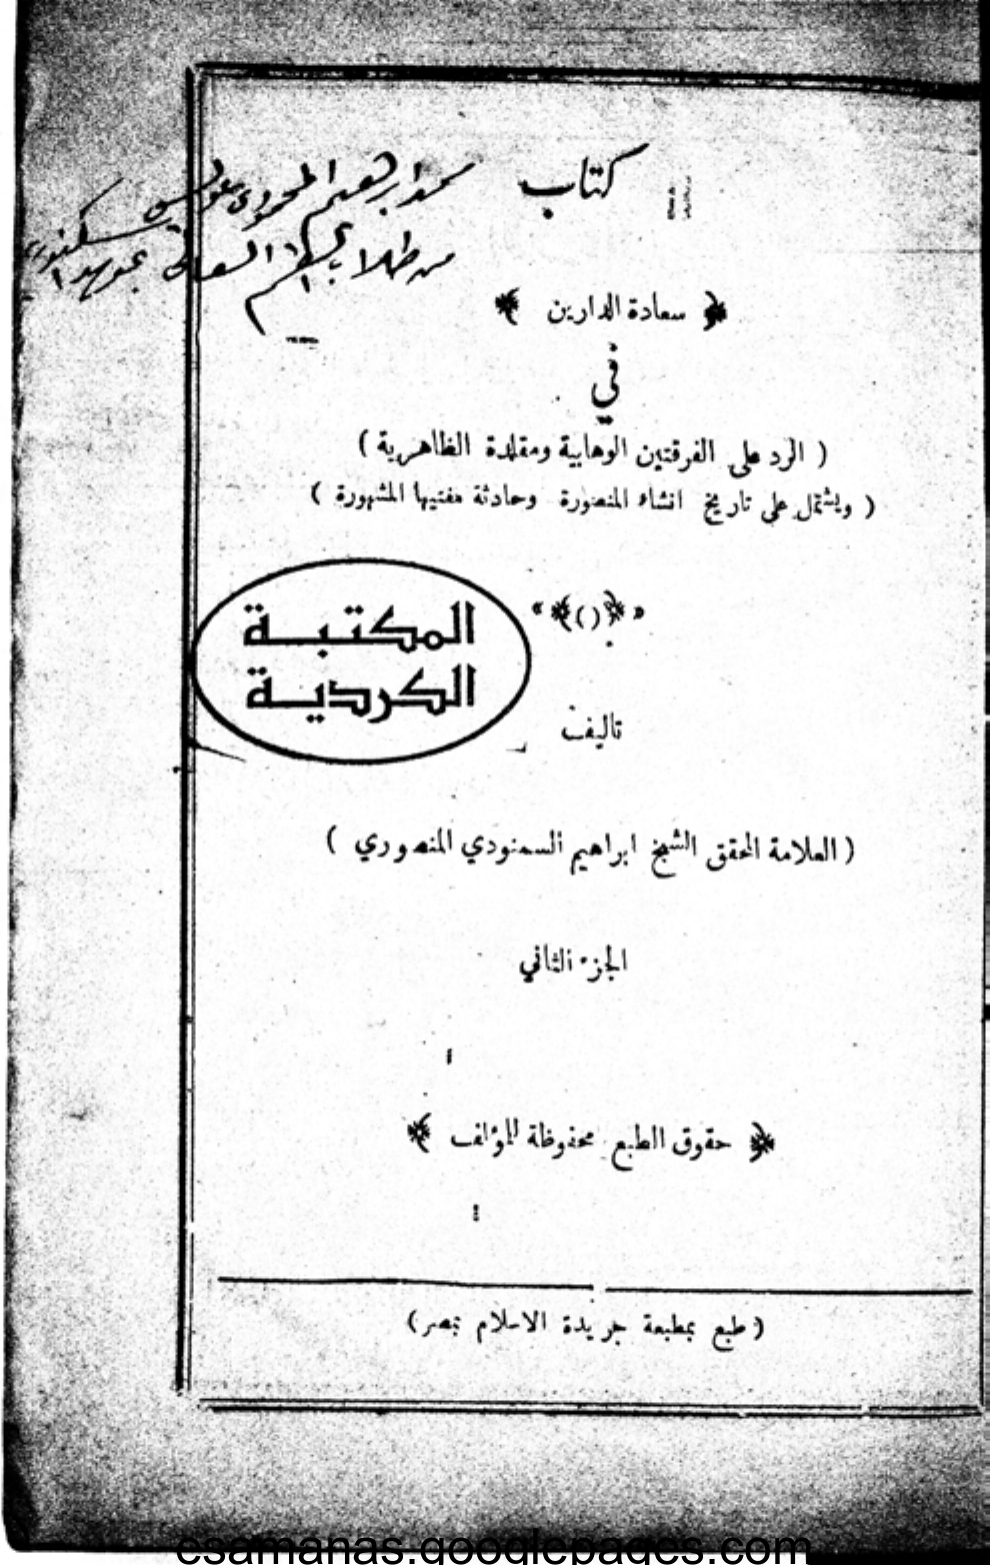 كتاب
محمد ابرهيم المحمودى
من طلاب
﴿ سعادة الدارين ﴾
في
( الرد على الفرقتين الوهابية ومقلدة الظاهرية )
( ويشتمل على تاريخ انشاء المنصورة وحادثة مفتيها المشهورة )
« ﴿()﴾ »
المكتبة
الكردية
تاليف
( العلامة المحقق الشيخ ابراهيم السمنودي المنصوري )
الجزء الثاني
﴿ حقوق الطبع محفوظة للمؤلف ﴾
(طبع بمطبعة جريدة الاسلام بمصر)
csamanas.googlepages.com